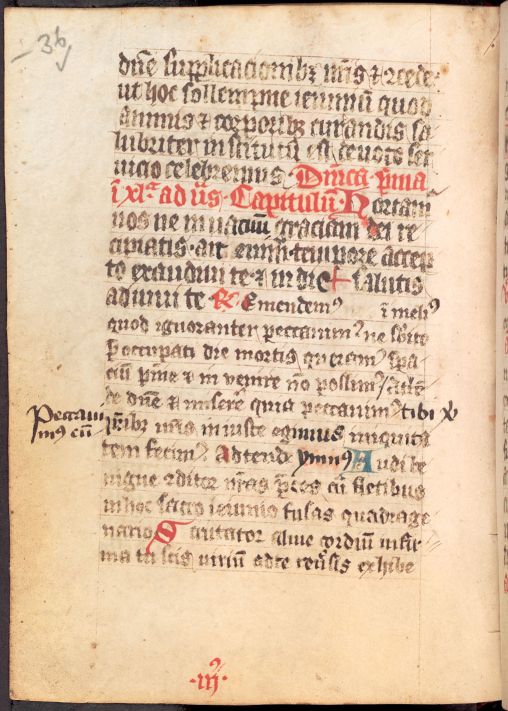 36
dn̄e supplicacionibꝫ nr̄is ⁊ ꝯcede
ut hoc sollempne ieiuniū quod
animis ⁊ corporibꝫ curandis sa
lubriter institutū est deuoto ser
uicio celebremus. Dn̄ica pͥma
ī xlͣ ad vs̄. Capitulū. Hortam̉
uos ne in uacuū graciam dei re
cipiatis. ait enim. tempore accep
to exaudiui te ⁊ in die salutis
adiuui te R̷ Emendemꝰ ī meliꝰ
quod ignoranter peccauimꝰ ne sb̄ito
p̄occupati die mortis queramꝰ spa
ciū pn̄ie ⁊ inuenire nō possimꝰ Attē
de dn̄e ⁊ miserē quia peccauimꝰ tibi
Peccauimꝰ cū
pr̄ibꝫ nr̄is iniuste egimus iniquita
tem fecimꝰ Attende ymnꝰ Audi be
nigne ꝯditor nr̄as p̄ces cū fletibus
in hoc sacro ieiunio fusas quadrage
nario Scrutator alme cordiū infir
ma tu scis uiriū ad te reūsis exhibe
·iij·